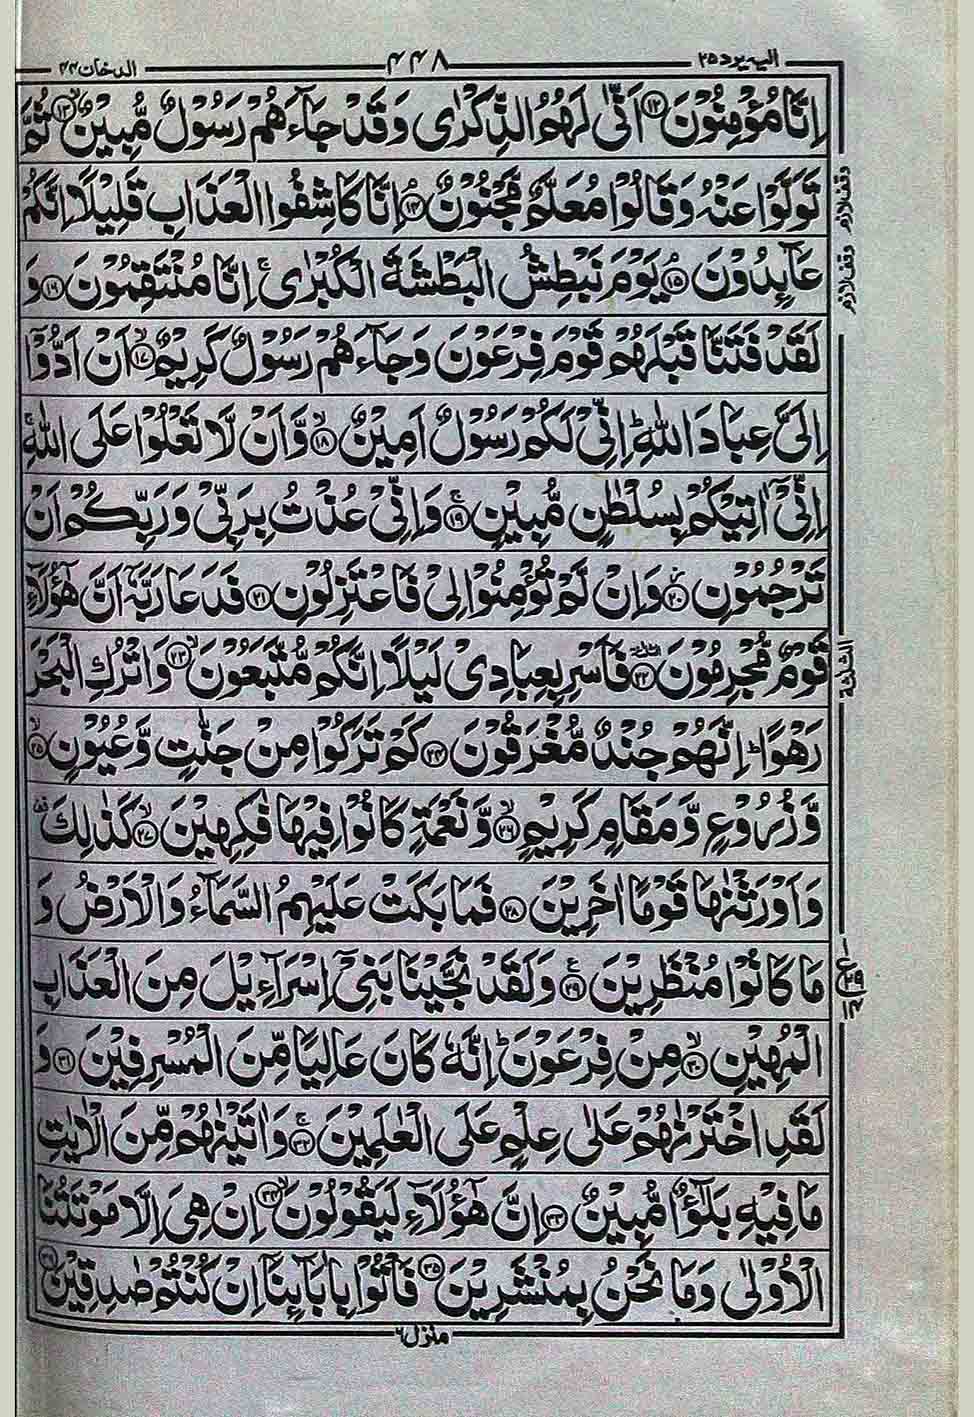 الیہ یرد ۲۵
۴۴۸
الدخان ۴۴
اِنَّا مُؤْمِنُوْنَ ﴿۱۲﴾ اَنّٰى لَهُمُ الذِّكْرٰى وَقَدْ جَآءَهُمْ رَسُوْلٌ مُّبِيْنٌ ﴿۱۳﴾ ثُمَّ
تَوَلَّوْا عَنْهُ وَقَالُوْا مُعَلَّمٌ مَّجْنُوْنٌ ﴿۱۴﴾ اِنَّا كَاشِفُوا الْعَذَابِ قَلِيْلًا اِنَّكُمْ
عَآئِدُوْنَ ﴿۱۵﴾ يَوْمَ نَبْطِشُ الْبَطْشَةَ الْكُبْرٰى ۚ اِنَّا مُنْتَقِمُوْنَ ﴿۱۶﴾ وَ
لَقَدْ فَتَنَّا قَبْلَهُمْ قَوْمَ فِرْعَوْنَ وَجَآءَهُمْ رَسُوْلٌ كَرِيْمٌ ﴿۱۷﴾ اَنْ اَدُّوْٓا
اِلَىَّ عِبَادَ اللّٰهِ ؕ اِنِّىْ لَكُمْ رَسُوْلٌ اَمِيْنٌ ﴿۱۸﴾ وَّاَنْ لَّا تَعْلُوْا عَلَى اللّٰهِ ۚ
اِنِّىْٓ اٰتِيْكُمْ بِسُلْطٰنٍ مُّبِيْنٍ ﴿۱۹﴾ وَاِنِّىْ عُذْتُ بِرَبِّىْ وَرَبِّكُمْ اَنْ
تَرْجُمُوْنِ ﴿۲۰﴾ وَاِنْ لَّمْ تُؤْمِنُوْا لِىْ فَاعْتَزِلُوْنِ ﴿۲۱﴾ فَدَعَا رَبَّهٗٓ اَنَّ هٰٓؤُلَآءِ
قَوْمٌ مُّجْرِمُوْنَ ﴿۲۲﴾ فَاَسْرِ بِعِبَادِىْ لَيْلًا اِنَّكُمْ مُّتَّبَعُوْنَ ﴿۲۳﴾ وَاتْرُكِ الْبَحْرَ
رَهْوًا ؕ اِنَّهُمْ جُنْدٌ مُّغْرَقُوْنَ ﴿۲۴﴾ كَمْ تَرَكُوْا مِنْ جَنّٰتٍ وَّعُيُوْنٍ ﴿۲۵﴾
وَّزُرُوْعٍ وَّمَقَامٍ كَرِيْمٍ ﴿۲۶﴾ وَّنَعْمَةٍ كَانُوْا فِيْهَا فٰكِهِيْنَ ﴿۲۷﴾ كَذٰلِكَ
وَاَوْرَثْنٰهَا قَوْمًا اٰخَرِيْنَ ﴿۲۸﴾ فَمَا بَكَتْ عَلَيْهِمُ السَّمَآءُ وَالْاَرْضُ وَ
مَا كَانُوْا مُنْظَرِيْنَ ﴿۲۹﴾ وَلَقَدْ نَجَّيْنَا بَنِىْٓ اِسْرَآءِيْلَ مِنَ الْعَذَابِ
الْمُهِيْنِ ﴿۳۰﴾ مِنْ فِرْعَوْنَ ؕ اِنَّهٗ كَانَ عَالِيًا مِّنَ الْمُسْرِفِيْنَ ﴿۳۱﴾ وَ
لَقَدِ اخْتَرْنٰهُمْ عَلٰى عِلْمٍ عَلَى الْعٰلَمِيْنَ ﴿۳۲﴾ وَاٰتَيْنٰهُمْ مِّنَ الْاٰيٰتِ
مَا فِيْهِ بَلٰٓـؤٌا مُّبِيْنٌ ﴿۳۳﴾ اِنَّ هٰٓؤُلَآءِ لَيَقُوْلُوْنَ ﴿۳۴﴾ اِنْ هِىَ اِلَّا مَوْتَتُنَا
الْاُوْلٰى وَمَا نَحْنُ بِمُنْشَرِيْنَ ﴿۳۵﴾ فَاْتُوْا بِاٰبَآئِنَآ اِنْ كُنْتُمْ صٰدِقِيْنَ ﴿۳۶﴾
وقف لازم
وقف لازم
الثلثة
منزل ۶